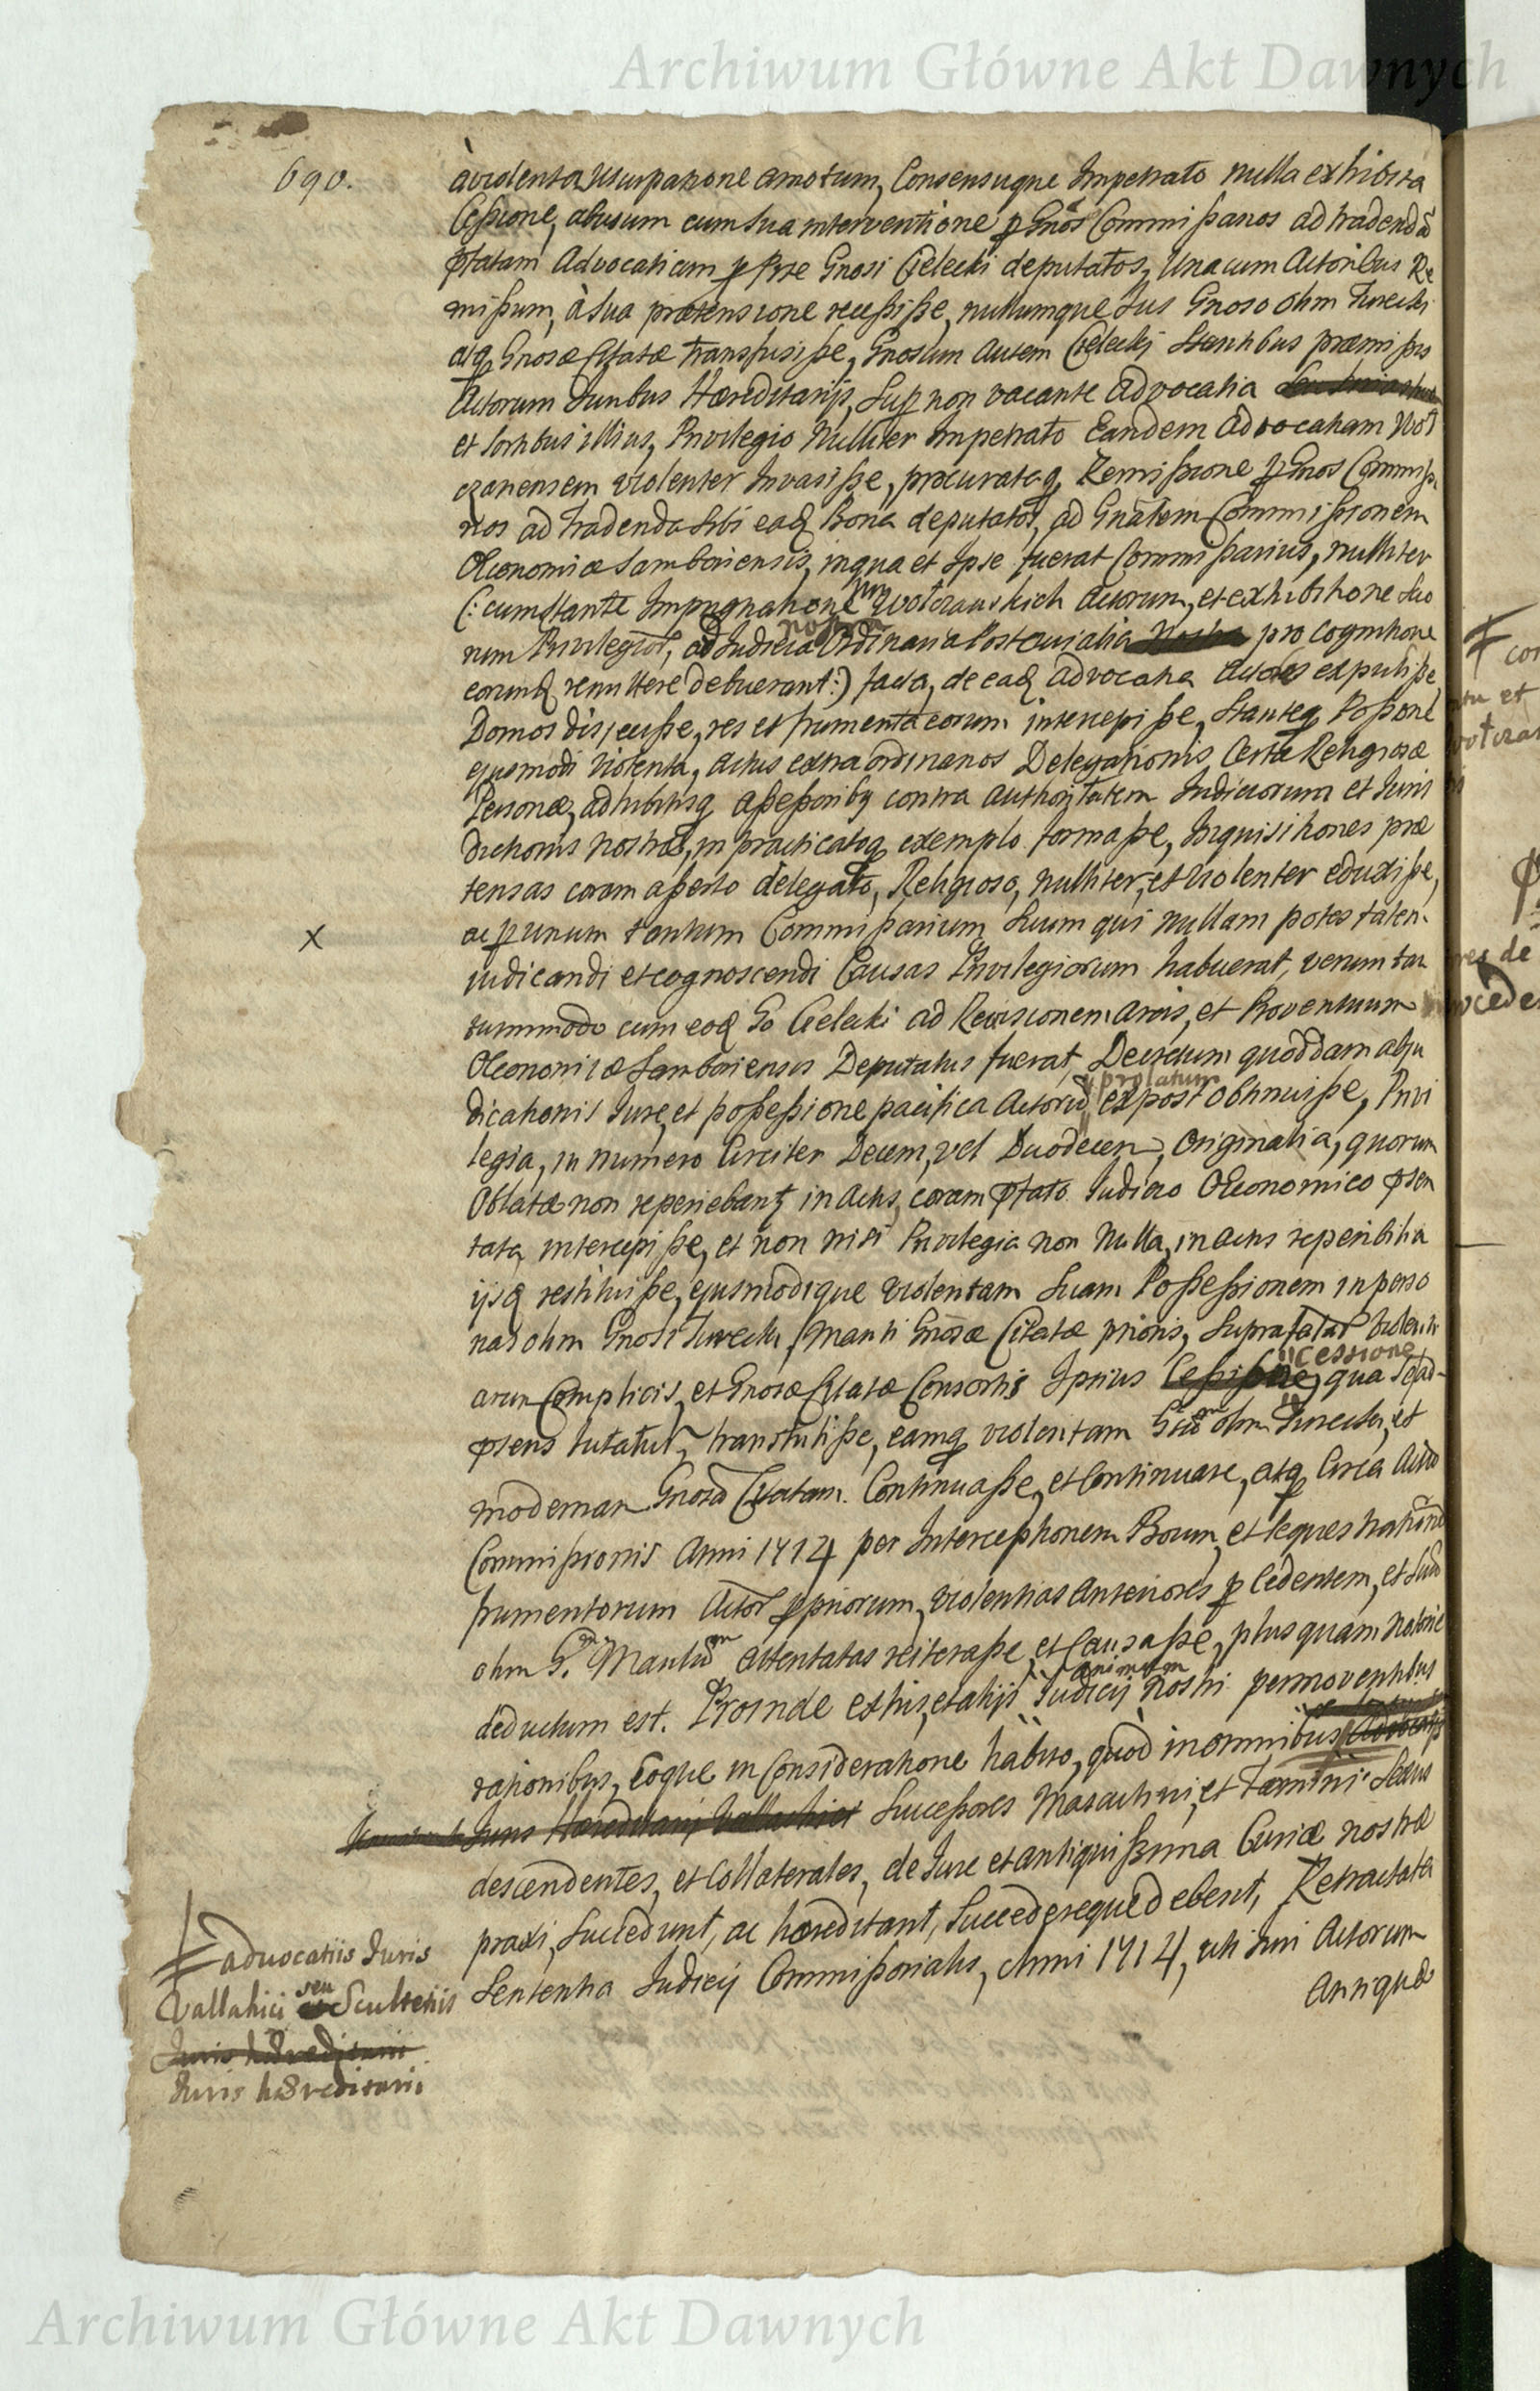 Archiwum Główne Akt Dawnych
690.
à violenta Usurpatione amotum, Consensuque Impetrato nulla exhibita
Cessione, abusum cum sua interventione p Gnos Commissarios ad tradendā
pfatam Advocatiam p Pte Gnosi Cielecki deputatos, Una cum Actoribus Re
missum, à sua prætensione recessisse, nullumque Jus Gnoso olim Turecki
atq Gnosæ Citatæ transfusisse, Gnosum autem Cielecki Stantibus præmissis
Actorum Juribus Hæreditarijs, Sup non vacante Advocatia
et sortibus illius, Privilegio Nulliter Impetrato Eandem Advocatiam Wot
czanensem violenter Invasisse, procurataq Remissione p Gnos Commissa
rios ad tradenda sibi eaq Bona deputatos, ad Gnalem Commissionem
Oeconomiæ Samboriensis, in qua et Ipse fuerat Commissarius, nulliter
(: cum stante Impugnatione Gnm Wotczanskich Actorum, et exhibitione Suo
rum Privilegior, ad Judicia nostra Ordinaria Post Curialia Nostra pro cognitione
eorumq remittere debuerant :) facta, de eaq Advocatia Actores expulisse,
Domos disjecisse, res et frumenta eorum intercepisse, Stanteq Possone
ejusmodi violenta, actus extraordinarios Delegationis Certæ Religiosæ
Personæ, adhibitisq Assessoribq contra authoritatem Judiciorum et Juris
dictionis Nostræ, in practicatoq exemplo formasse, Inquisitiones præ
tensas coram asserto delegato, Religioso, nulliter, et violenter eduxisse,
X
ac p unum tantum Commissarium Suum qui nullam potestatem
judicandi et cognoscendi Causas Privilegiorum habuerat, verum tan
tummodo cum eoq Go Cielecki ad Revisionem Arcis, et Proventuum
Oeconomiæ Samboriensis Deputatus fuerat, Decretum quoddam abju
dicationis Jure, et possessione pacifica Actorū prolatum ex post obtinuisse, Privi
legia, in numero Circiter Decem, vel Duodecem, Originalia, quorum
Oblatæ non reperiebantq in Actis, coram pfato Judicio Oeconomico psen
tata, intercepisse, et non nisi Privilegia non Nulla, in Actis reperibilia
ijsq restituisse, ejusmodique violentam Suam Possessionem in perso
nas olim Gnosi Turecki, Mariti Gnosæ Citatæ prioris, Suprafatar Violenti
arum Complicis, et Gnosæ Citatæ Consortis Ipsius Cessisse, cessione qua Se ad
psens tutatur, transtulisse, eamq violentam Gsūm olim Turecki, et
modernam Gnosā Citatam Continuasse, et Continuare, atq Circa Actū
Commissionis Anni 1714 per Interceptionem Boum, et sequestrationē
frumentorum Actor ppriorum, violentias Anteriores p Cedentem, et Suū
olim G.m Maritūm attentatas reiterasse, et Causasse, plus quam notorie
deductum est. Proinde ex his, et alijs Judicij Nostri animum permoventibus
rationibus, Eoque in Consideratione habito, quòd in omnibus Advocatijs
Juris Hæreditarij Vallachici Successores Masculini, et Fæminei Sexus
descendentes, et Collaterales, de Jure et antiquissima Curiæ nostræ
praxi, Succedunt, ac hæreditant, Succedereque debent, Retractata
Sententia Judicij Commissorialis, Anni 1714, uti Juri Actorum
Antiquo
advocatiis Juris
Vallahici seu Scultetiis
Juris hæreditarii
Juris hæreditarii
Archiwum Główne Akt Dawnych